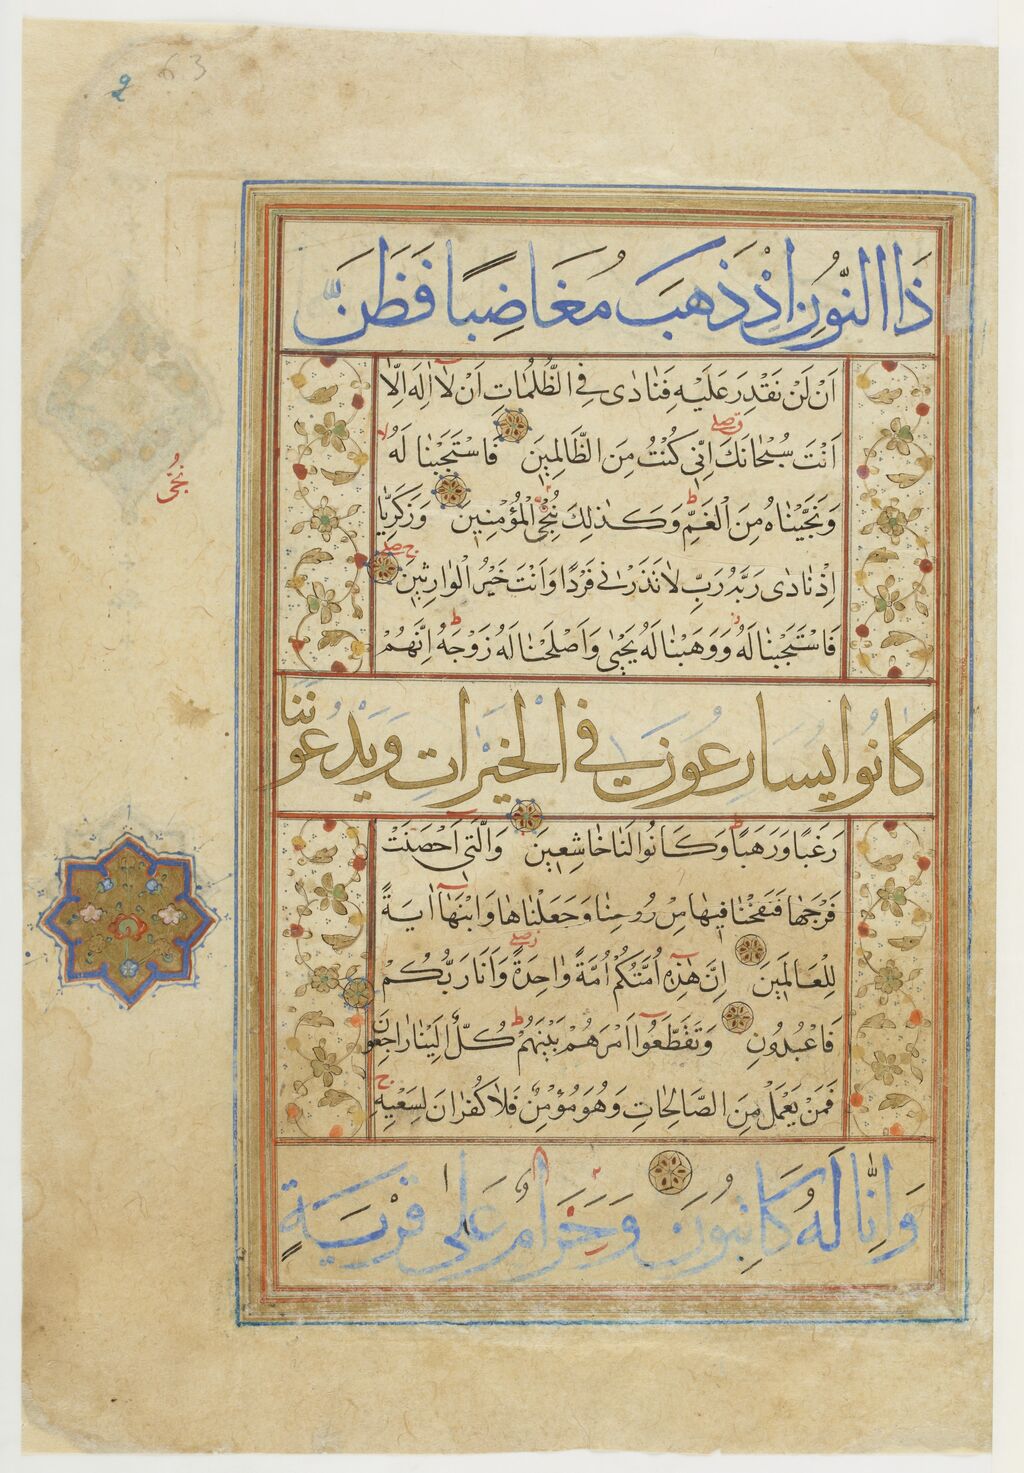 63
2
ذَا النُّونِ اِذْ ذَهَبَ مُغَاضِبًا فَظَنَّ
اَنْ لَنْ نَقْدِرَ عَلَيْهِ فَنَادٰى فِي الظُّلُمَاتِ اَنْ لَا اِلٰهَ اِلَّا
اَنْتَ سُبْحَانَكَ اِنِّي كُنْتُ مِنَ الظَّالِمِينَ فَاسْتَجَبْنَا لَهُ
وَنَجَّيْنَاهُ مِنَ الْغَمِّ وَكَذٰلِكَ نُنْجِي الْمُؤْمِنِينَ وَزَكَرِيَّا
نُجِّى
اِذْ نَادٰى رَبَّهُ رَبِّ لَا تَذَرْنِي فَرْدًا وَاَنْتَ خَيْرُ الْوَارِثِينَ
فَاسْتَجَبْنَا لَهُ وَوَهَبْنَا لَهُ يَحْيٰى وَاَصْلَحْنَا لَهُ زَوْجَهُ اِنَّهُمْ
كَانُوا يُسَارِعُونَ فِي الْخَيْرَاتِ وَيَدْعُونَنَا
رَغَبًا وَرَهَبًا وَكَانُوا لَنَا خَاشِعِينَ وَالَّتِي اَحْصَنَتْ
فَرْجَهَا فَنَفَخْنَا فِيهَا مِنْ رُوحِنَا وَجَعَلْنَاهَا وَابْنَهَا اٰيَةً
لِلْعَالَمِينَ اِنَّ هٰذِهِ اُمَّتُكُمْ اُمَّةً وَاحِدَةً وَاَنَا رَبُّكُمْ
فَاعْبُدُونِ وَتَقَطَّعُوا اَمْرَهُمْ بَيْنَهُمْ كُلٌّ اِلَيْنَا رَاجِعُونَ
فَمَنْ يَعْمَلْ مِنَ الصَّالِحَاتِ وَهُوَ مُؤْمِنٌ فَلَا كُفْرَانَ لِسَعْيِهِ
وَاِنَّا لَهُ كَاتِبُونَ وَحَرَامٌ عَلٰى قَرْيَةٍ